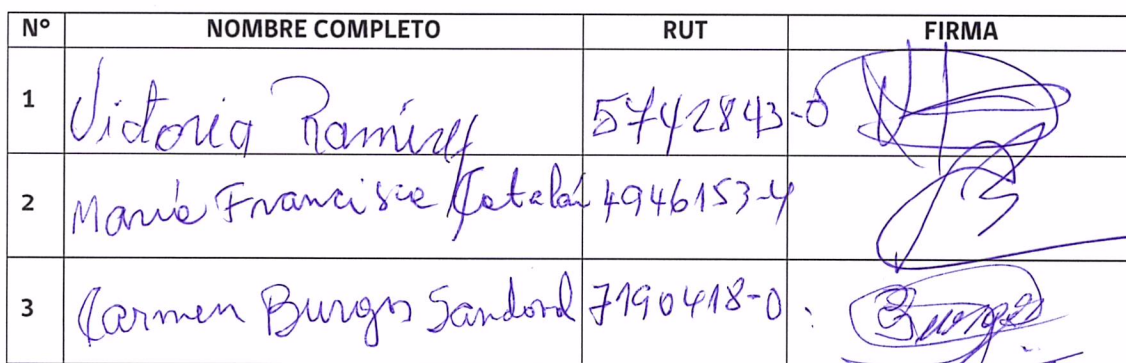 N° NOMBRE COMPLETO RUT FIRMA
1 Victoria Ramírez 5742843-0
2 María Francisca Catalán 4946153-4
3 Carmen Burgos Sandoval 7190418-0 Burgos